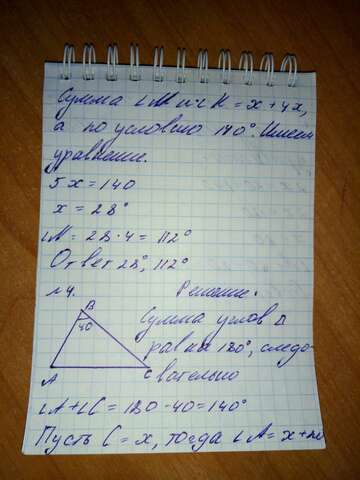 Сумма ∠М и ∠К = х + 4х,
а по условию 140°. Имеем
уравнение.
5х = 140
х = 28°
∠М = 28 · 4 = 112°
Ответ 28°, 112°
№4. Решение.
B
40
A
C
Сумма углов Δ
равна 180°, следо-
вательно
∠A + ∠C = 180 - 40 = 140°
Пусть C = х, тогда ∠A = х +